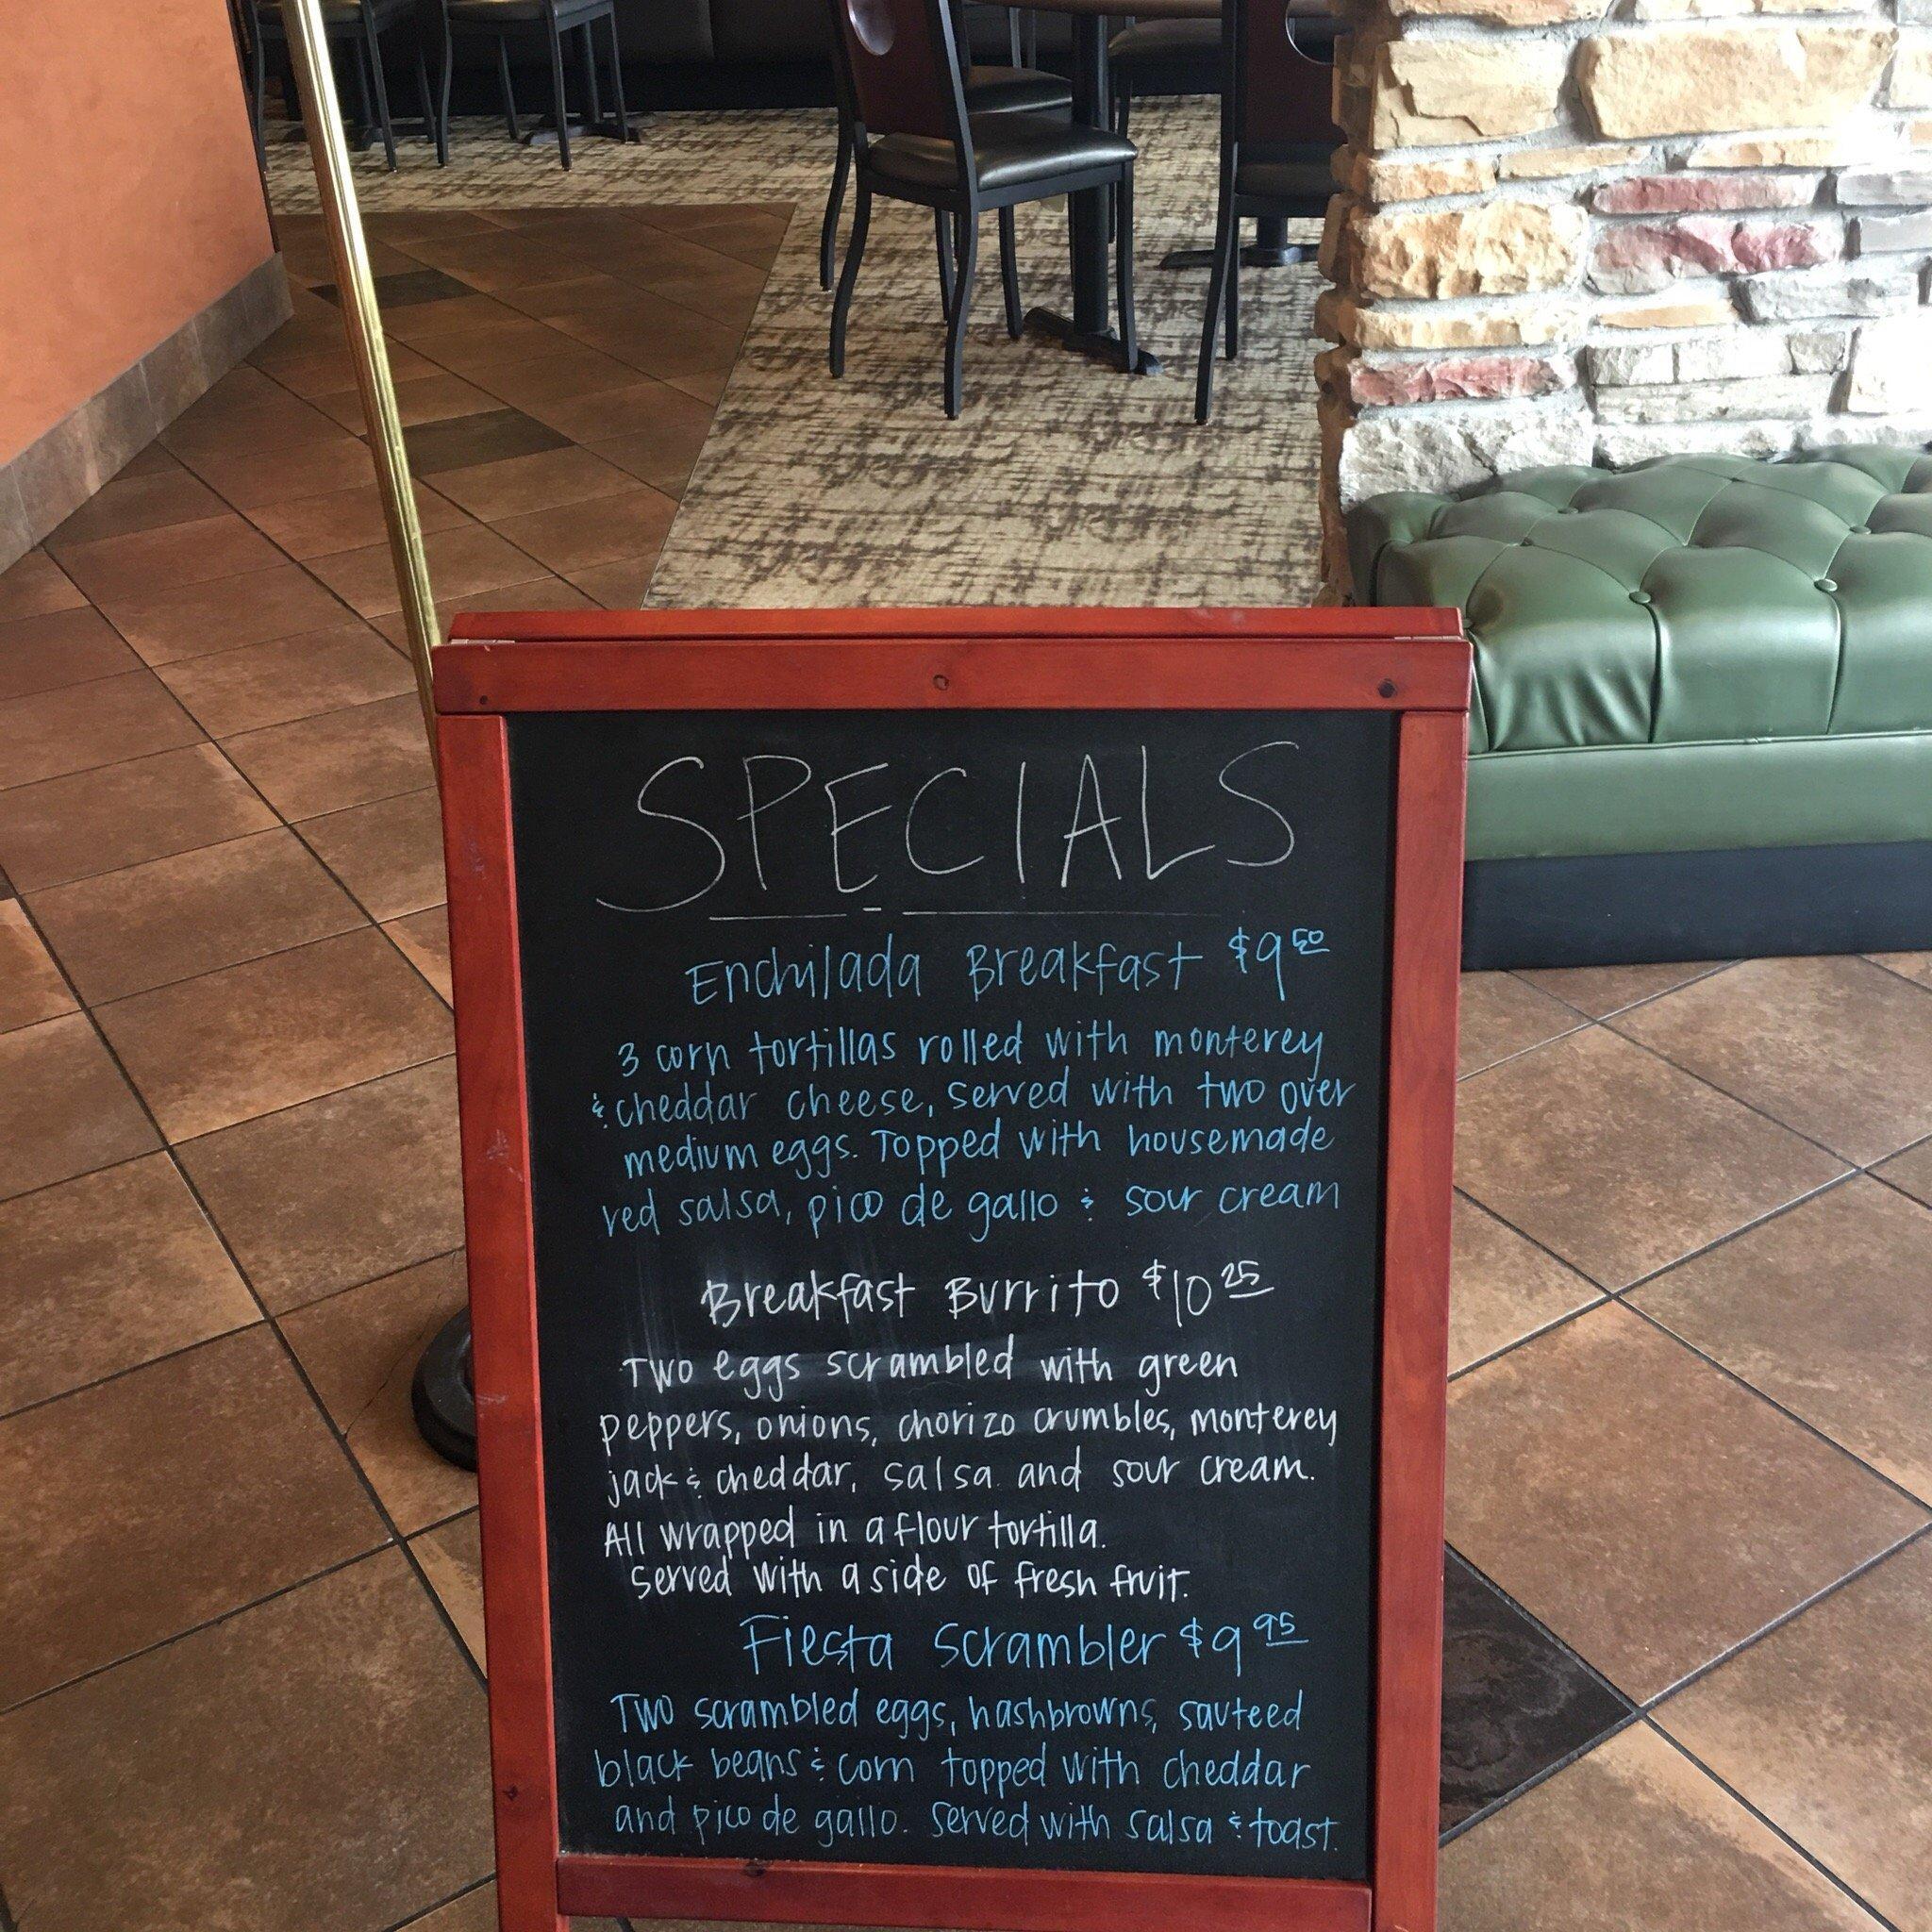 SPECIALS
Enchilada Breakfast $9 50
3 corn tortillas rolled with monterey
& cheddar cheese, served with two over
medium eggs. Topped with housemade
red salsa, pico de gallo & sour cream
Breakfast Burrito $10 25
Two eggs scrambled with green
peppers, onions, chorizo crumbles, monterey
jack & cheddar, salsa and sour cream.
All wrapped in a flour tortilla.
served with a side of fresh fruit.
Fiesta Scrambler $9 95
Two scrambled eggs, hashbrowns, sauteed
black beans & corn topped with cheddar
and pico de gallo. served with salsa & toast.